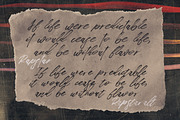 If life were predictable
it would cease to be life,
and be without flavor.
Regular
If life were predictable
it would cease to be life,
and be without flavor.